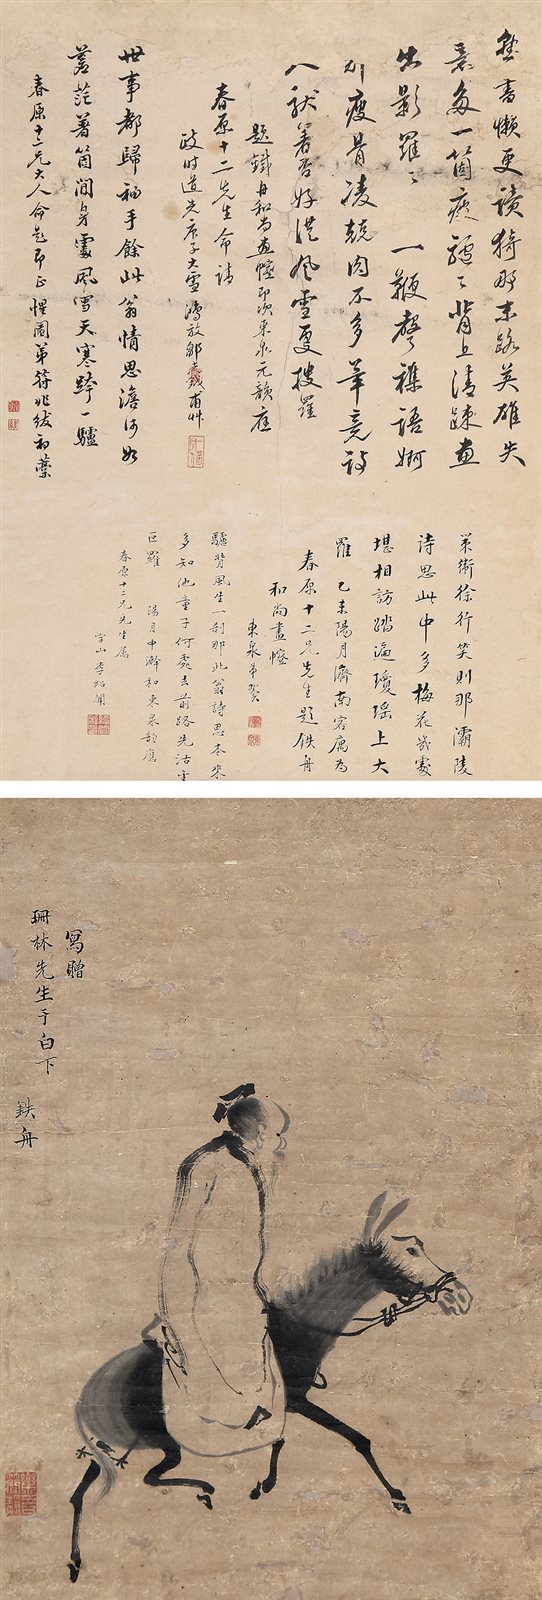 焚書懶更讀猗那末路英雄失
意多一箇瘦驢々背上清疎畫
出影羅々 一鞭聲襍語婀
加瘦骨凌兢肉不多畢竟詩
人馱著否好從風雪更搜羅
題鐵舟和尚畫幛即次東泉元韻應
春原十二先生命請
政時道光庚子大雪鴻放鄒甫艸
世事都歸袖手餘此翁情思澹何如
蒼茫著箇閒身處風雪天寒跨一驢
春原十二兄大人命題即正惺園弟符兆紱初藳
策衛徐行笑則那灞陵
詩思此中多梅花幾處
堪相訪踏遍瓊瑤上大
羅 乙未陽月濟南客寓為
春原十二兄先生題鉄舟
和尚畫幛
東泉弟賀
驢背風生一刹那此翁詩思本來
多知他童子何處去前路先沽金
叵羅 陽月中澣和東泉韵應
春原十二兄先生属
字山李紹聞
寫贈
珊林先生于白下
鉄舟